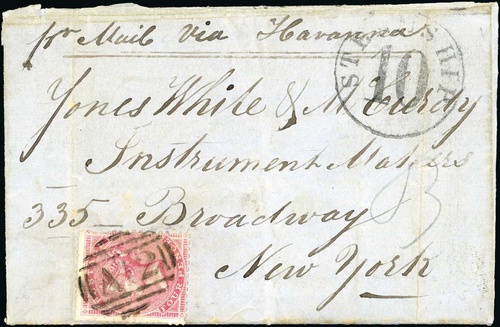 pr Mail via Havanna
STEAMSHIP
10
Jones White & McCurdy
Instrument Makers
335 Broadway
New York
3
A 2
FOUR